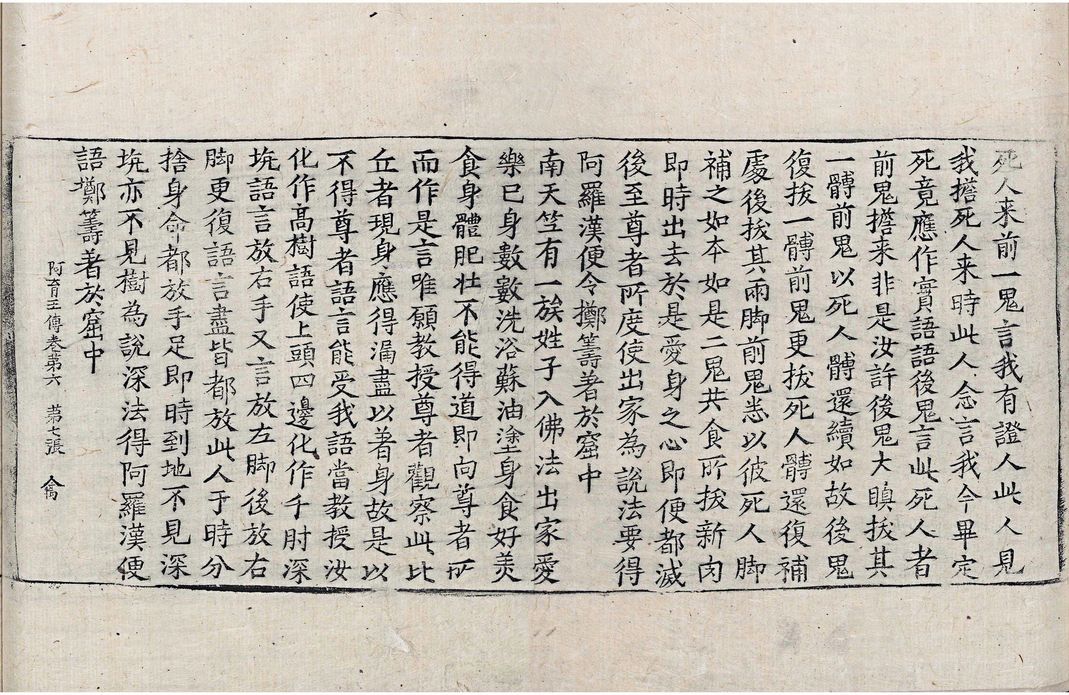 死人来前一鬼言我有證人此人見
我擔死人来時此人念言我今畢定
死竟應作實語語後鬼言此死人者
前鬼擔来非是汝許後鬼大瞋拔其
一髆前鬼以死人髆還續如故後鬼
復拔一髆前鬼更拔死人髆還復補
處後拔其兩脚前鬼悉以彼死人脚
補之如本如是二鬼共食所拔新肉
即時出去於是愛身之心即便都滅
後至尊者所度使出家為説法要得
阿羅漢便令擲籌著於窟中
南天竺有一族姓子入佛法出家愛
樂已身數數洗浴蘇油塗身食好美
食身體肥壯不能得道即向尊者所
而作是言唯願教授尊者觀察此比
丘者現身應得漏盡以著身故是以
不得尊者語言能受我語當教授汝
化作高樹語使上頭四邊化作千肘深
坑語言放右手又言放左脚後放右
脚更復語言盡皆都放此人于時分
捨身命都放手足即時到地不見深
坑亦不見樹為説深法得阿羅漢便
語擲籌著於窟中
阿育王傳卷第六 第七張